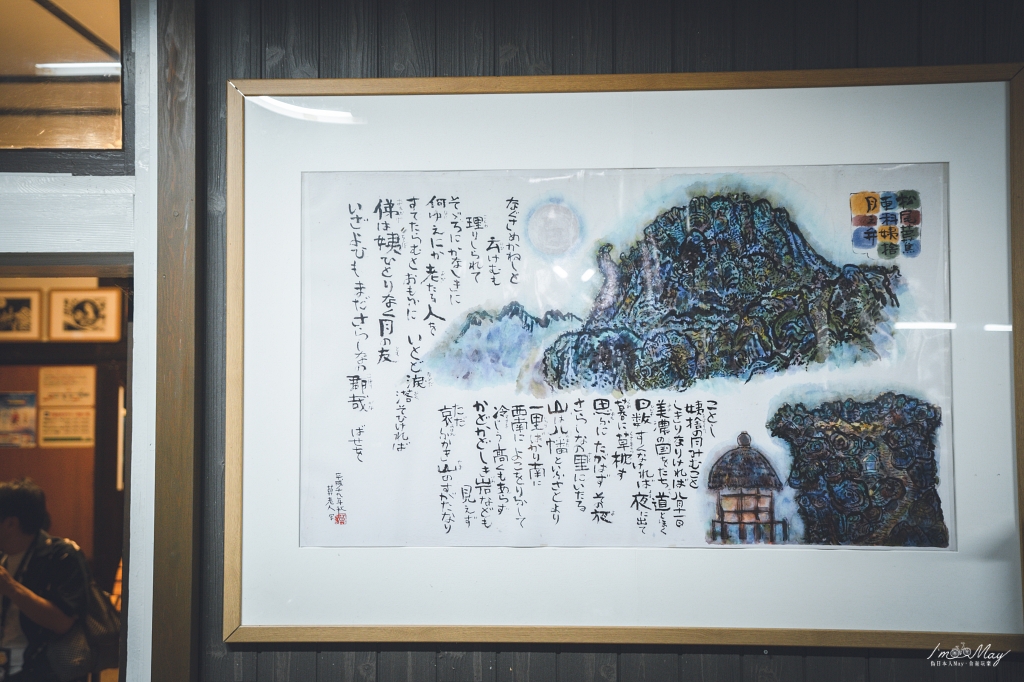 松尾芭蕉
更科姨捨
月之弁
ことし
姨捨の月みむこと
しきりなりければ 八月十一日
美濃の国をたち 道とほく
日数すくなければ 夜に出て
暮に草枕す
思ふにたがはず その夜
さらしなの里にいたる
山は八幡といふさとより
一里ばかり南に
西南によこをりふして
冷じう高くもあらず
かどかどしき岩なども 見えず
ただ 哀ふかき山のすがたなり
なぐさめかねしと
云けむも
理りしられて
そぞろにかなしきに
何ゆえにか老たる人を
すてたらむとおもふに いとど涙 落そひければ
俤は姨ひとりなく月の友
いざよひもまださらしなの郡哉 ばせを
I'm May
偽日本人May・食遊玩樂